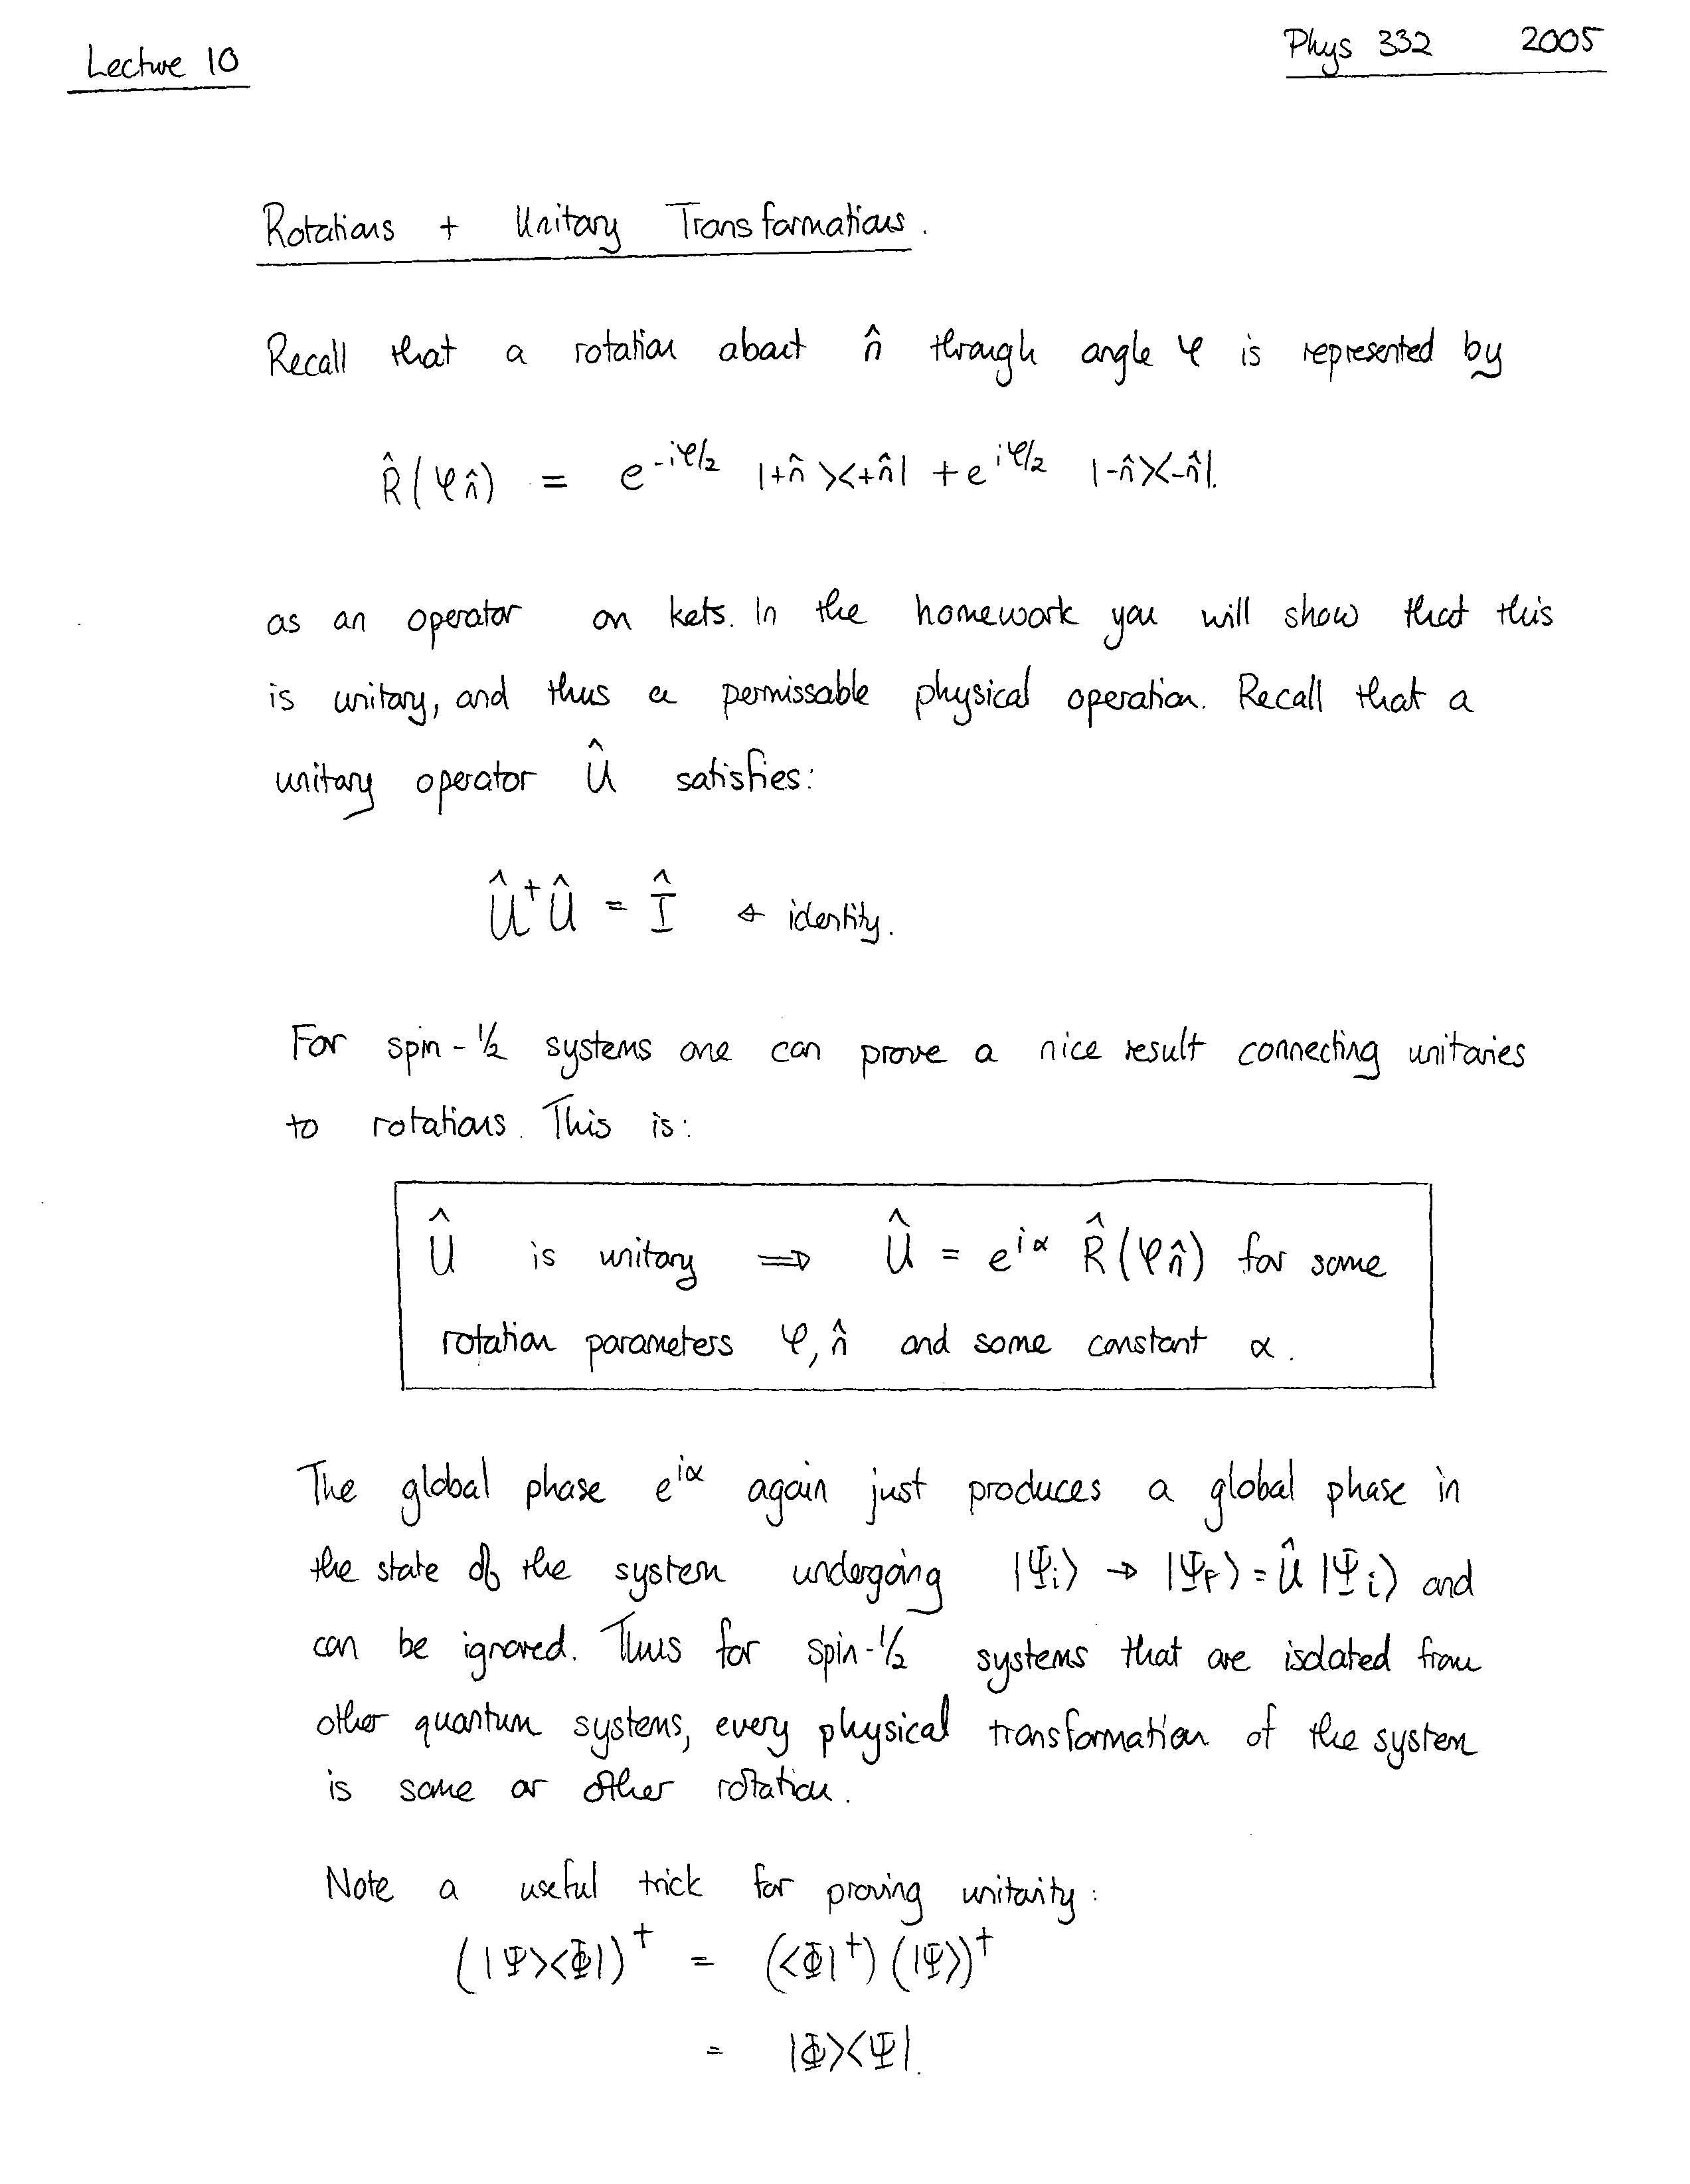 Lecture 10
Phys 332 2005
Rotations + Unitary Transformations.
Recall that a rotation about n̂ through angle φ is represented by
R̂(φn̂) = e^{-iφ/2} |+n̂><+n̂| + e^{iφ/2} |-n̂><-n̂|.
as an operator on kets. In the homework you will show that this
is unitary, and thus a permissable physical operation. Recall that a
unitary operator Û satisfies:
Û†Û = Î ← identity.
For spin-1/2 systems one can prove a nice result connecting unitaries
to rotations. This is:
Û is unitary ⇒ Û = e^{iα} R̂(φn̂) for some
rotation parameters φ, n̂ and some constant α.
The global phase e^{iα} again just produces a global phase in
the state of the system undergoing |Ψi> → |Ψf> = Û |Ψi> and
can be ignored. Thus for spin-1/2 systems that are isolated from
other quantum systems, every physical transformation of the system
is some or other rotation.
Note a useful trick for proving unitarity:
(|Ψ><Φ|)† = (<Φ|†)(|Ψ>)†
= |Φ><Ψ|.